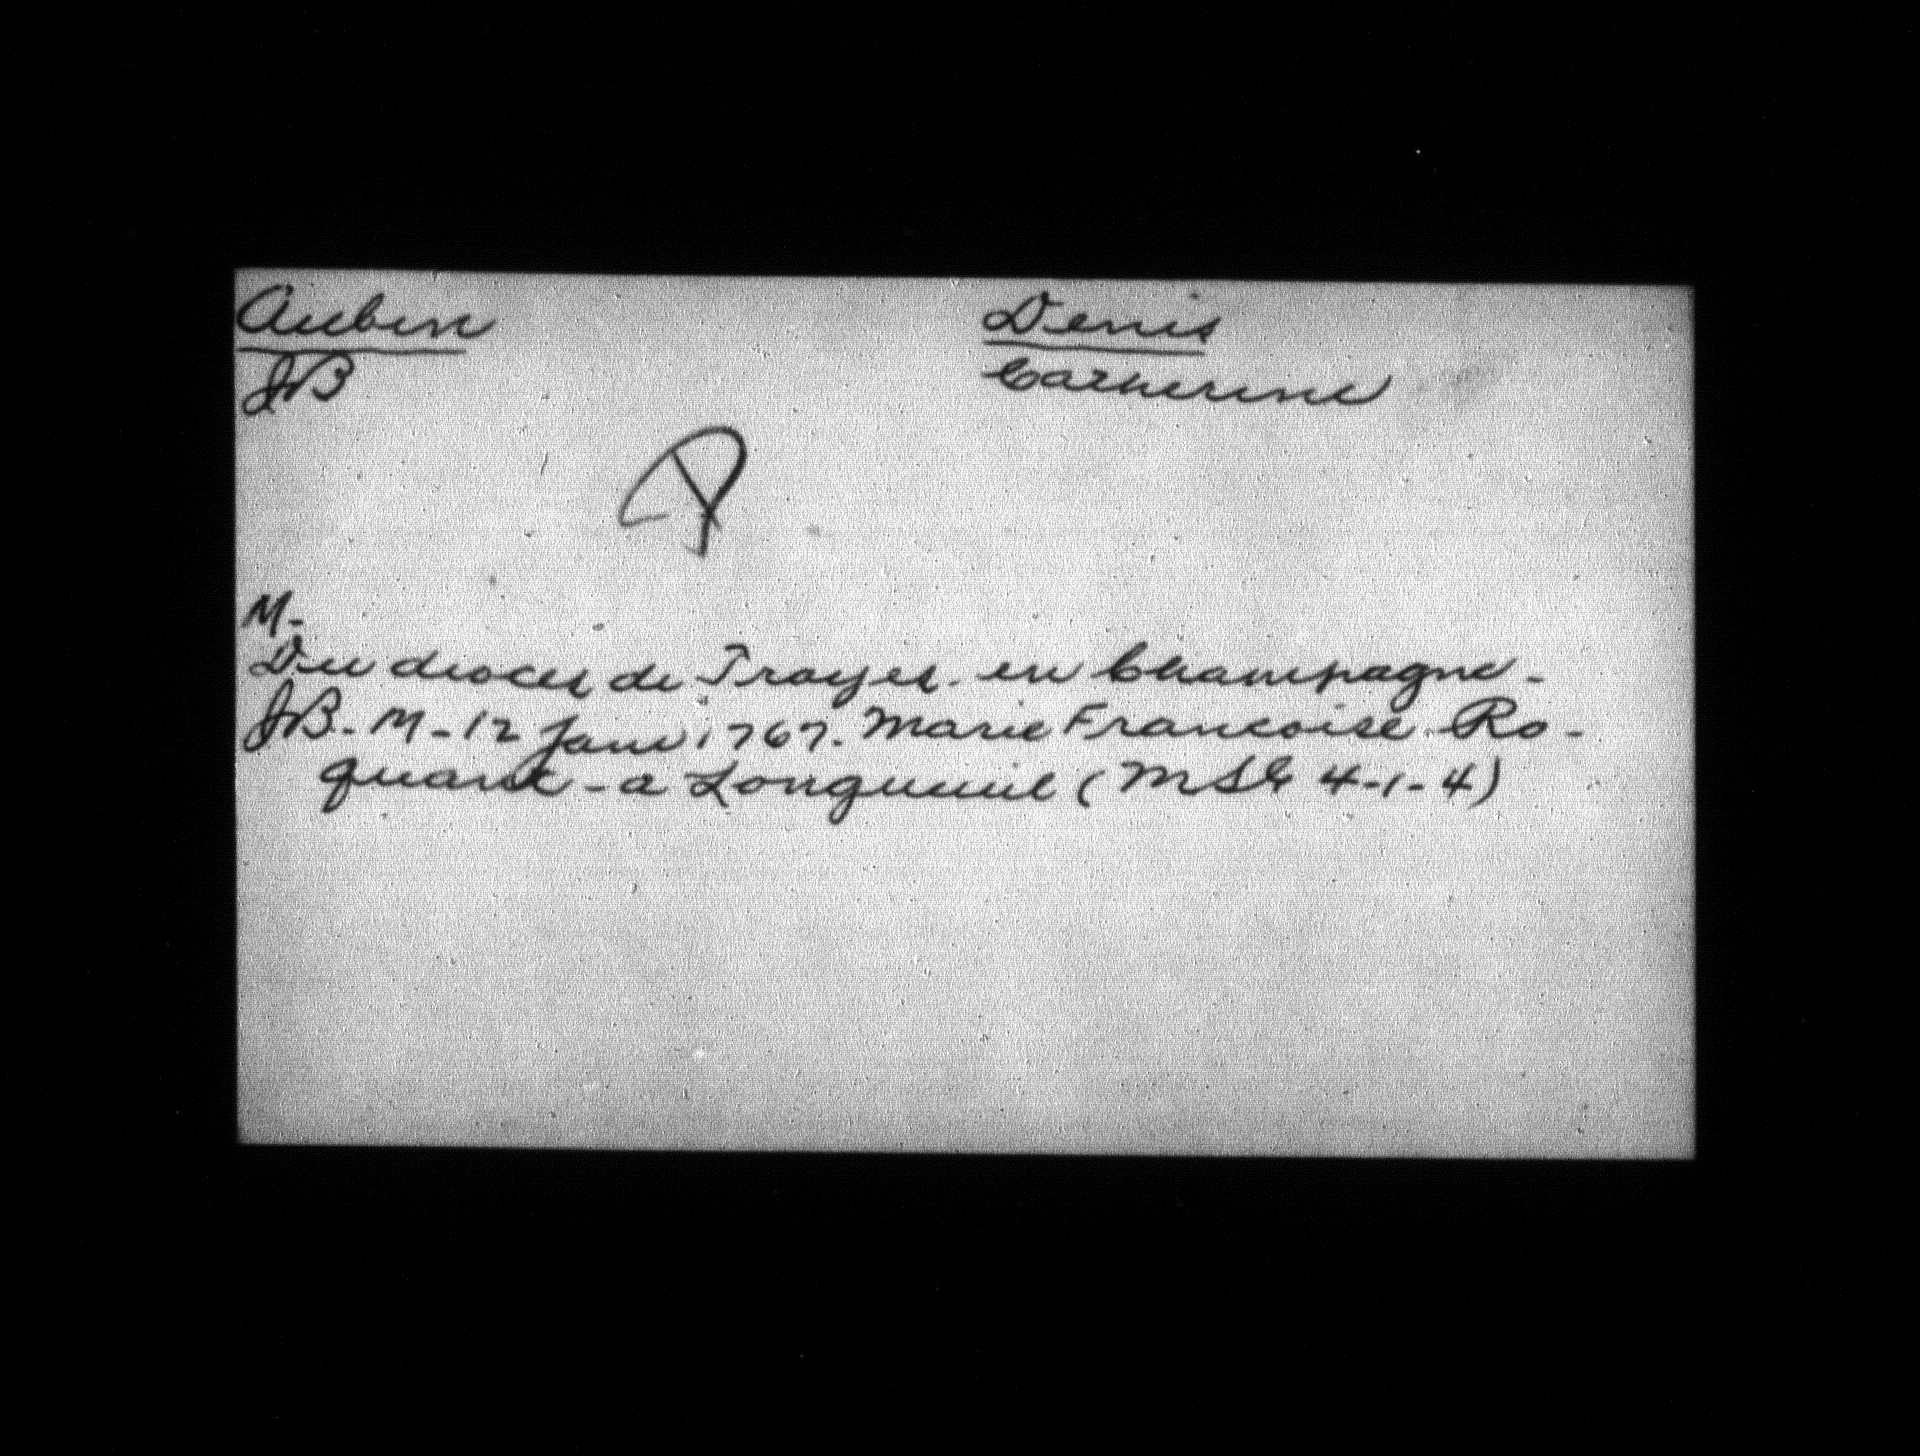 Aubin Denis
JB Catherine
M-
Du dioces de Troyes. en Champagne-
JB- M-12 Janv 1767. Marie Francoise Ro-
quant - a Longueuil (MSG 4-1-4)